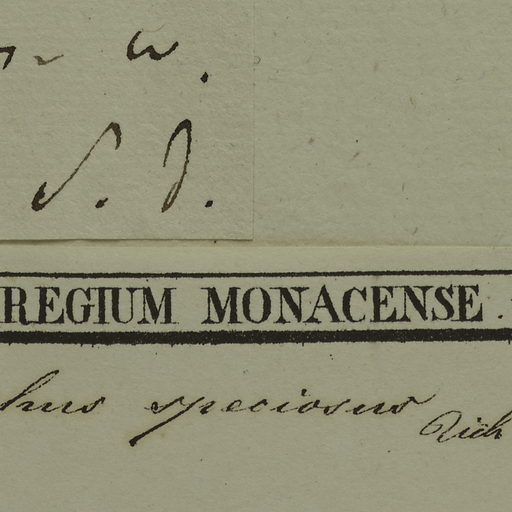 w.
S. J.
REGIUM MONACENSE.
hus speciosus
Rich